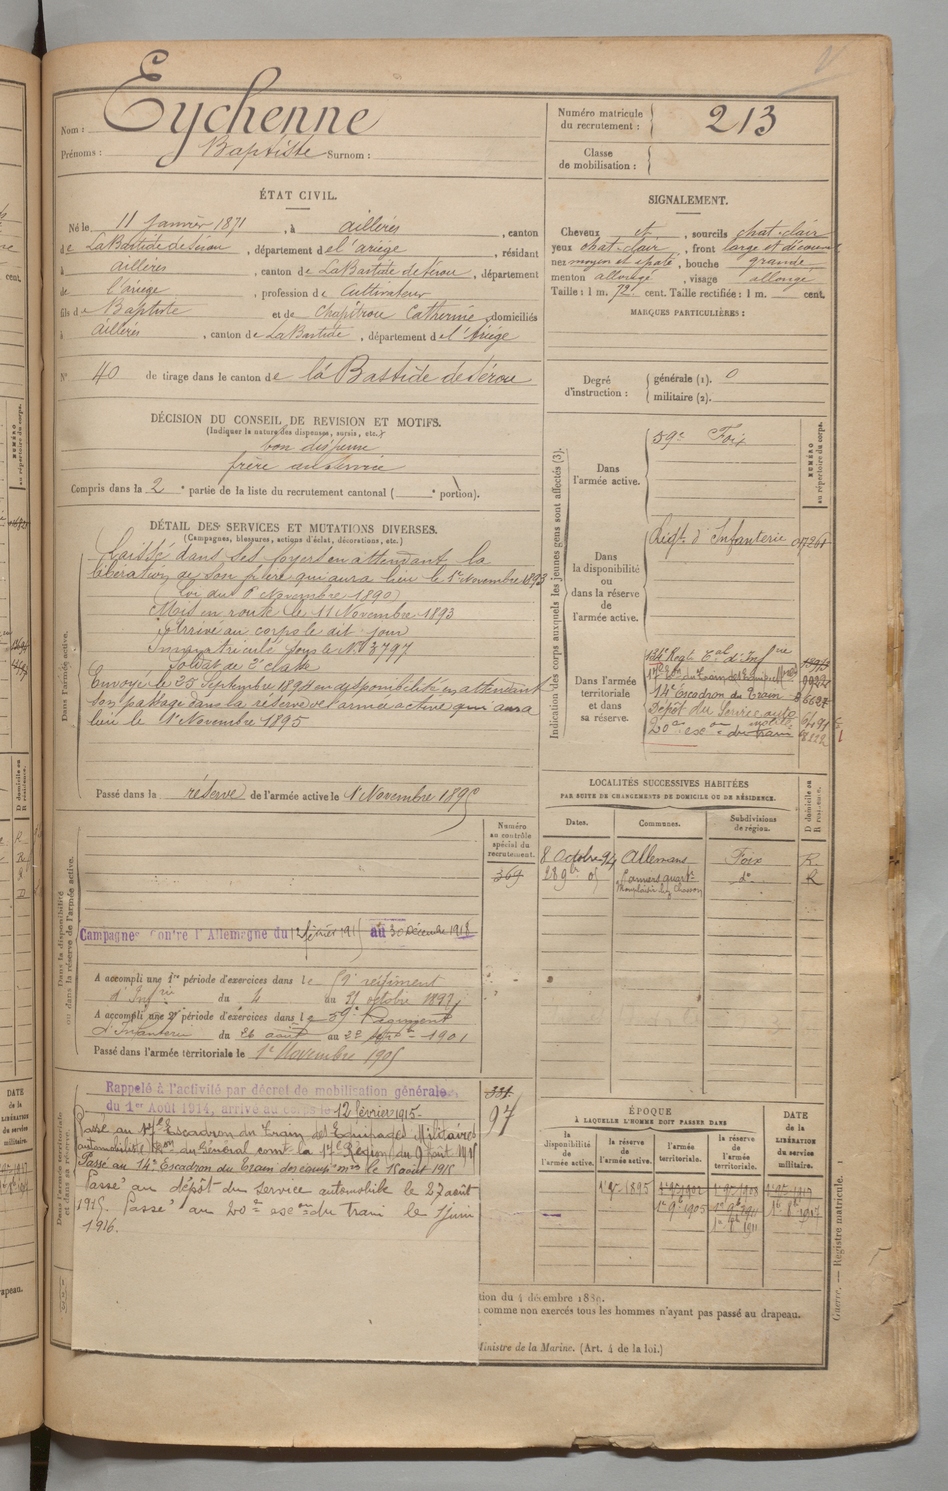 Nom : Eychenne
Prénoms : Baptiste Surnom :
Numéro matricule du recrutement : 213
Classe de mobilisation :
ÉTAT CIVIL.
Né le 11 Janvier 1871, à aillères, canton
de LaBastide de Sérou, département de l'ariège, résidant
à aillères, canton de LaBastide de Sérou, département
de l'ariège, profession de Cultivateur
fils de Baptiste et de Chapitrou Catherine domiciliés
à aillères, canton de LaBastide, département de l'Ariège
N° 40 de tirage dans le canton de la Bastide de Sérou
SIGNALEMENT.
Cheveux et, sourcils chat-clair
yeux chat-clair, front large et découvert
nez moyen et épaté, bouche grande
menton allongé, visage allongé
Taille : 1 m. 72 cent. Taille rectifiée : 1 m. cent.
MARQUES PARTICULIÈRES :
Degré d'instruction : générale (1). 0
militaire (2).
DÉCISION DU CONSEIL DE REVISION ET MOTIFS.
(Indiquer la nature des dispenses, sursis, etc.)
bon dispensé
frère au service
Compris dans la 2e partie de la liste du recrutement cantonal ( e portion).
DÉTAIL DES SERVICES ET MUTATIONS DIVERSES.
(Campagnes, blessures, actions d'éclat, décorations, etc.)
Dans l'armée active.
Laissé dans ses foyers en attendant la
libération de son frère qui aura lieu le 1er Novembre 1893
(Loi du 6 Novembre 1890)
Mis en route le 11 Novembre 1893
Arrivé au corps le dit jour
Immatriculé sous le N° 3797
Soldat de 2e classe
Envoyé le 25 Septembre 1894 en disponibilité en attendant
son passage dans la réserve de l'armée active qui aura
lieu le 1er Novembre 1895
Passé dans la réserve de l'armée active le 1er Novembre 1895
Indication des corps auxquels les jeunes gens sont affectés (3).
NUMÉRO au répertoire du corps.
Dans l'armée active.
59e Foix
Dans la disponibilité ou dans la réserve de l'armée active.
Régt. d'Infanterie
Dans l'armée territoriale et dans sa réserve.
134e Régt. Tal d'Infrie
14e Escadron du Train 6627
Dépôt du Service auto
20e escon du train
LOCALITÉS SUCCESSIVES HABITÉES
PAR SUITE DE CHANGEMENTS DE DOMICILE OU DE RÉSIDENCE.
Dates. Communes. Subdivisions de région. D domicile ou R résidence.
8 Octobre 94 Allemans Foix R.
28 9bre 05 Pamiers quart. do R
Dans la disponibilité ou dans la réserve de l'armée active.
Numéro au contrôle spécial du recrutement.
369
Campagne contre l'Allemagne du 12 février 1915 au 30 Décembre 1918
A accompli une 1re période d'exercices dans le 59e régiment
d'Infrie du 4 au 31 octobre 1897
A accompli une 2e période d'exercices dans le 59e Régiment
d'Infanterie du 26 août au 22 septbre 1901
Passé dans l'armée territoriale le 1er Novembre 1905
Rappelé à l'activité par décret de mobilisation générale
du 1er Août 1914, arrivé au corps le 12 février 1915.
331
97
Passé au 17e Escadron du Train des Equipages Militaires
automobiliste Don du Général comt la 17e Région du 9 août 1915
Passé au 14e Escadron du Train des équipes mres le 15 août 1915
Passé au dépôt du service automobile le 27 août
1915. Passé au 20e escon du train le 1 juin
1916.
ÉPOQUE
À LAQUELLE L'HOMME DOIT PASSER DANS
la disponibilité de l'armée active. la réserve de l'armée active. l'armée territoriale. la réserve de l'armée territoriale.
DATE de la LIBÉRATION du service militaire.
1er 9e 1895
1er 9b 1905 1er 9b 1911
tion du 4 décembre 1889.
comme non exercés tous les hommes n'ayant pas passé au drapeau.
Ministre de la Marine. (Art. 4 de la loi.)
Guerre. — Registre matricule.